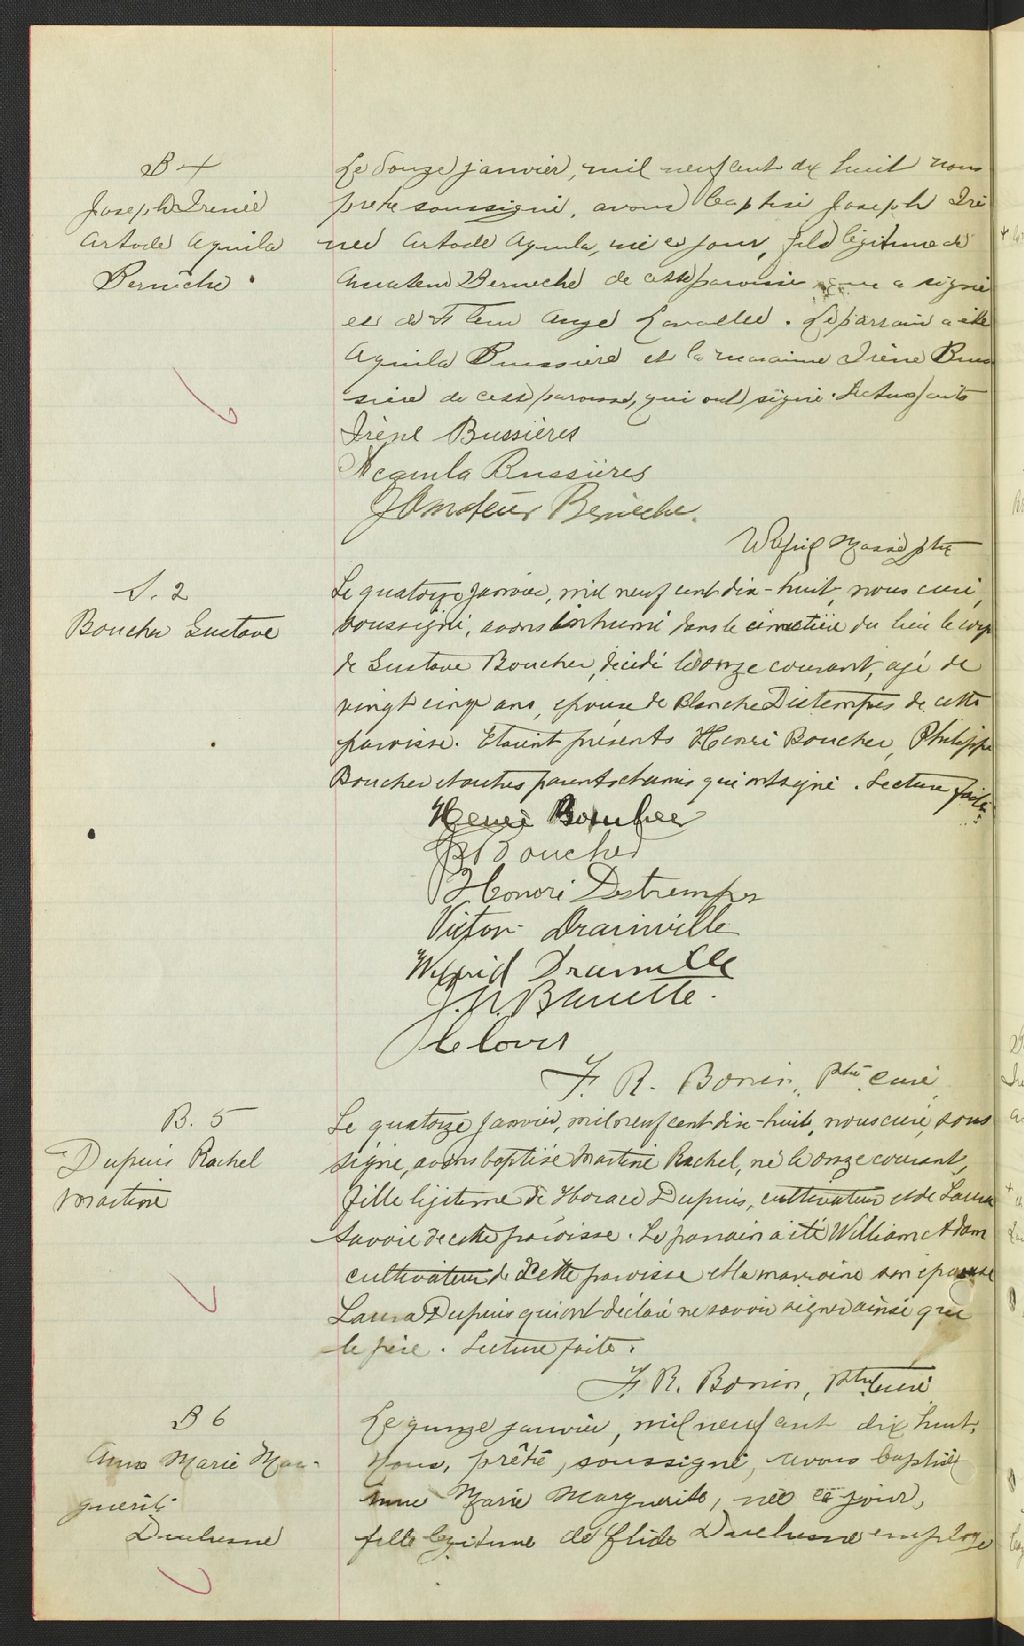 B 4
Joseph Irénée
Aquila
Bernèche
Le douze janvier, mil neuf cent dix huit nous
prêtre soussigné, avons baptisé Joseph Iré
née Aquila, né ce jour, fils légitime de
Amateur Bernèche de cette paroisse qui a signé
et de Fleur Ange Lavallée. Le parrain a été
Aquila Bussière et la marraine Irène Bus
sière de cette paroisse, qui ont signé. Lecture faite
Irène Bussières
Acquila Bussières
J Amateur Bernèche.
Wilfrid Massé ptre
S. 2
Boucher Gustave
Le quatorze janvier, mil neuf cent dix-huit, nous curé,
soussigné, avons inhumé dans le cimetière du lieu le corps
de Gustave Boucher, décédé le onze courant, agé de
vingt cinq ans, epoux de Blanche Destempes de cette
paroisse. Etaient présents Henri Boucher, Philippe
Boucher et autres parents et amis qui ont signé. Lecture faite.
Henri Boucher
Boucher
Honoré Destrempes
Victor Drainville
Wilfrid Drainville
F. R. Bonin, Ptre curé
B. 5
Dupuis Rachel
Martine
Le quatorze janvier, mil neuf cent dix-huit, nous curé, sous
signé, avons baptisé Martine Rachel, né le onze courant,
fille légitime de Horace Dupuis, cultivateur et de Laura
Savoie de cette paroisse. Le parrain a été William Adam
cultivateur de cette paroisse et la marraine son epouse
Laura Dupuis qui ont déclaré ne savoir signer ainsi que
le père. Lecture faite.
F. R. Bonin, Ptre curé
B 6
Anna Marie Mar-
guerite
Duchesne
Le quinze janvier, mil neuf cent dix huit,
Nous, prêtre, soussigné, avons baptisé
Anna Marie Marguerite, née ce jour,
fille légitime de Duchesne employé